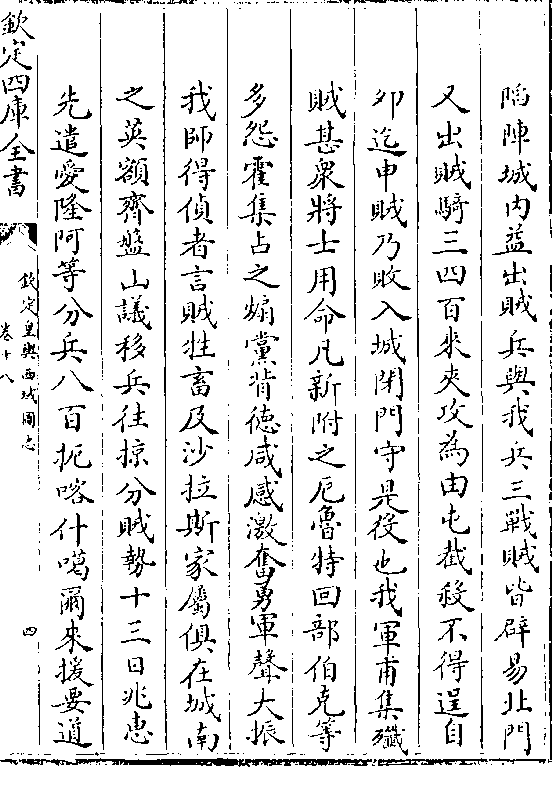 陷陣城内益出賊兵與我兵三戰賊皆辟易北門
又出賊騎三四百來夾攻為由屯截殺不得逞自
夘迄申賊乃敗入城閉門守是役也我軍甫集殲
賊甚衆將士用命凡新附之厄魯特回部伯克等
多怨霍集占之煽黨背德咸感激奮勇軍聲大振
我師得偵者言賊牲畜及沙拉斯家屬俱在城南
之英額齊盤山議移兵往掠分賊勢十三日兆惠
先遣愛隆阿等分兵八百扼喀什噶爾來援要道
欽定四庫全書
欽定皇輿西域圖志
卷十八
四